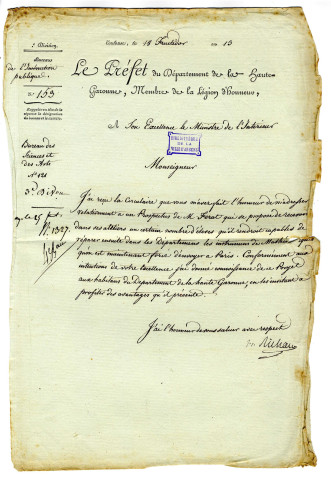 Division
Bureau
de l'Instruction
publique
N.º 153
Toulouse, le 18 Fructidor an 13
Le Préfet du Département de la Haute
Garonne, Membre de la Légion d'honneur,
A Son Excellence le Ministre de l'Intérieur
Bureau des
Sciences et
des Arts
Nº 121
3.e Div.on
Monseigneur
J'ai reçu la Circulaire que vous m'avez fait l'honneur de m'adresser
relativement à un Prospectus de M. Ferat qui se propose de recevoir
dans ses atteliers un certain nombre d'élèves qu'il rendroit capables de
réparer ensuite dans les Départements les instrumens de Mathém.
qu'on est maintenant forcé d'envoyer à Paris. Conformément aux
intentions de votre Excellence j'ai donné connoissance de ce Projet
aux habitans du Département de la haute Garonne, en les invitant à
profiter des avantages qu'il présente.
J'ai l'honneur de vous saluer avec respect
Richard